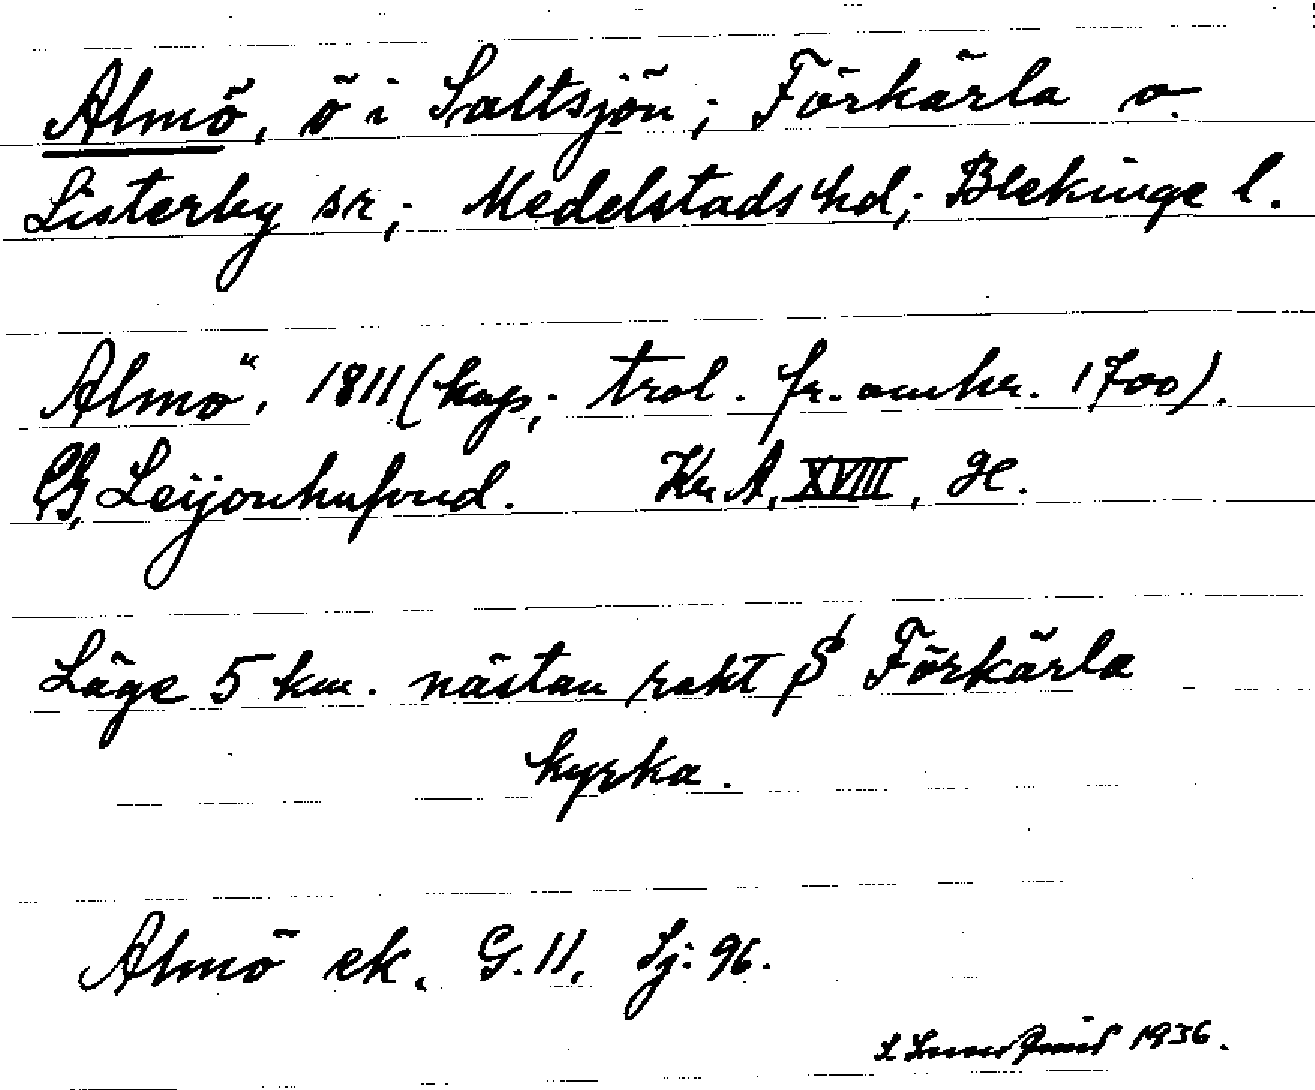 Almö, ö i Saltsjön; Förkärla o.
Listerby sr; Medelstads hd; Blekinge l.
Almö, 1811 (kop; trol. fr. omkr. 1700).
CG, Leijonhufvud. Kr A, XVIII, H.
Läge 5 km. nästan rakt S Förkärla
kyrka.
Almö ek. G. 11, Sj: 96.
1936.